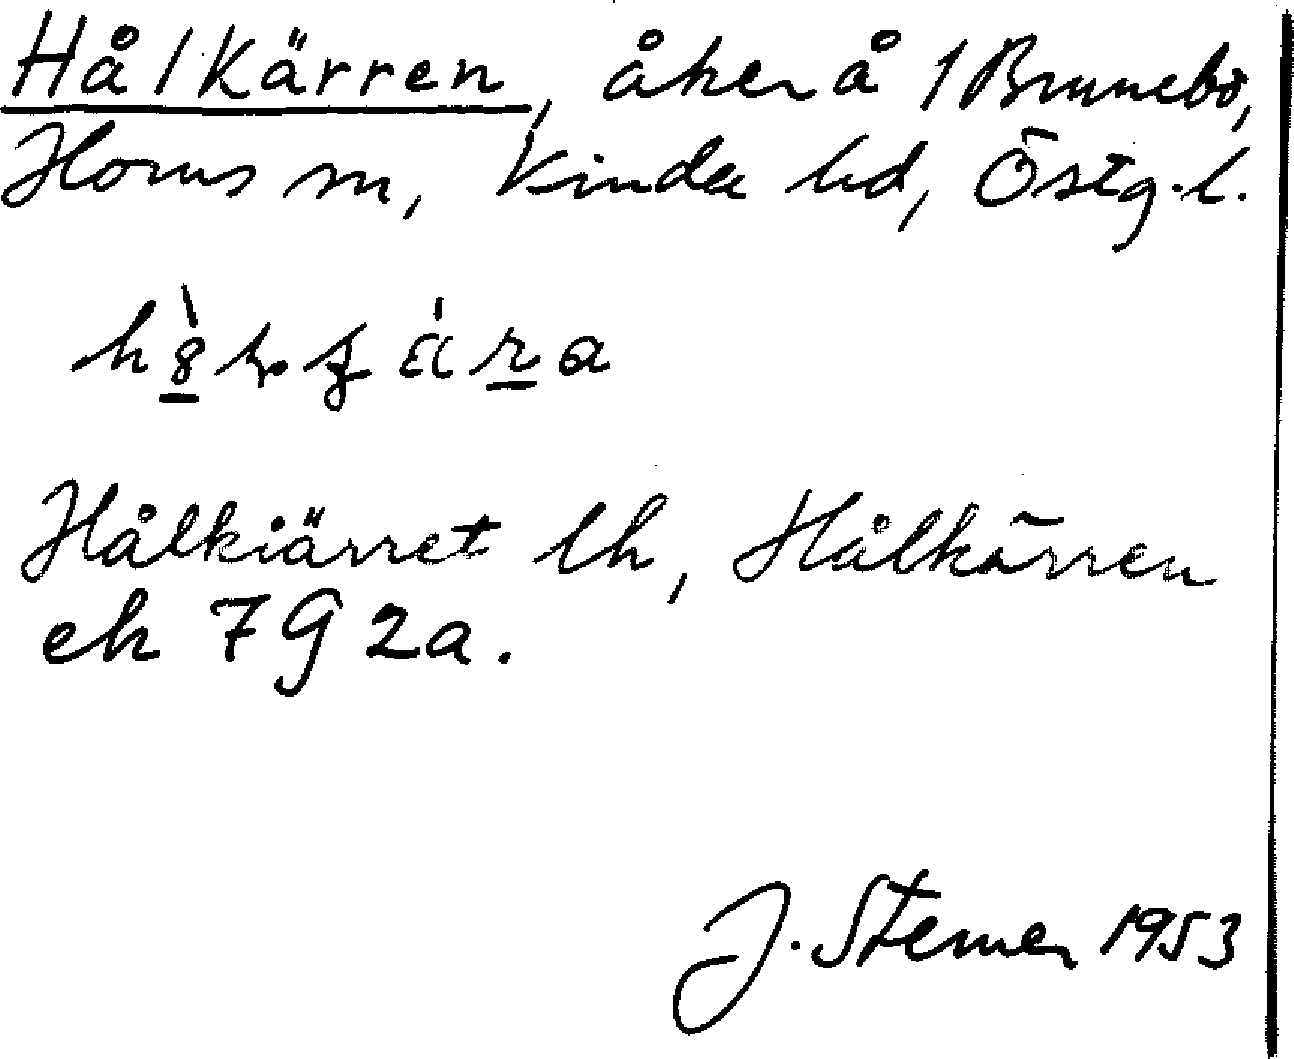 Hålkärren, åker å 1 Brunnebo,
Horns sn, Kinda hd, Östg. l.
Hålkiärret lh, Hålkärren
ek 7 G 2a.
J. Sterner 1953